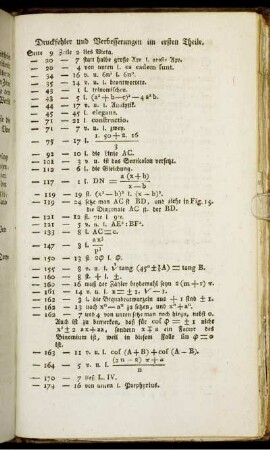 Druckfehler und Verbesserungen im ersten Theile.
Seite 9 Zeile 9 lies Vieta.
— 20 — 7 statt halbe große Axe l. große Axe.
— 20 — 4 von unten l. ea eadem sunt.
— 34 — 16 v. u. 6m² l. 6n².
— 35 — 14 v. u. l. beantwortete.
— 43 — 1 l. trinomischen.
— 43 — 5 l.
— 44 — 17 v. u. l. Analytik.
— 45 — 45 l. elegans.
— 71 — 21 l. constructio.
— 71 — 7 v. u. l. zwey.
— 75 — 17 l. 50 + 2. 16
3
— 92 — 10 l. die Linie AC.
— 101 — 3 v. u. ist das Semikolon versetzt.
— 112 — 6 l. die Gleichung.
— 117 — 1 l. DN = a (x + b)
x — b
— 119 — 19 st. (x—b)² l. (x—b)³.
— 119 — 24 setze man AC st BD, und ziehe in Fig. 15.
die Diagonale AC st. der BD.
— 121 — 12 st. 71e l. 97e.
— 121 — 5 v. u. l. AE² : BF².
— 133 — 8 l. AC = c.
— 147 — 3 l.
— 150 — 13 st 2φ l. φ.
— 155 — 8 v. u. l. √ tang (45° ± ½A) = tang B.
— 160 — 8 st. + l. ±.
— 160 — 16 muß der Zähler beydemahl seyn 2 (m + 1) π.
— 161 — 14 v. u. l. x = ± 1. √ — 1.
— 162 — 3 l. die Biquadratwurzeln aus + 1 sind ± 1.
— 162 — 13
— 162 — 7 und 4 von unten setze man noch hinzu, nebst 0.
Auch ist zu bemerken, daß für cos φ = ± 1 nicht
x² ± 2 ax + aa, sondern x ∓ a ein Factor des
Binomium ist, weil in diesem Falle sin φ = 0
ist.
— 163 — 11 v. u. l. cos (A + B) + cos (A — B).
— 164 — 5 v. u. l. (2n — 2) π + a
n
— 170 — 7 des L. IV.
— 174 — 16 von unten l. Porphyrius.